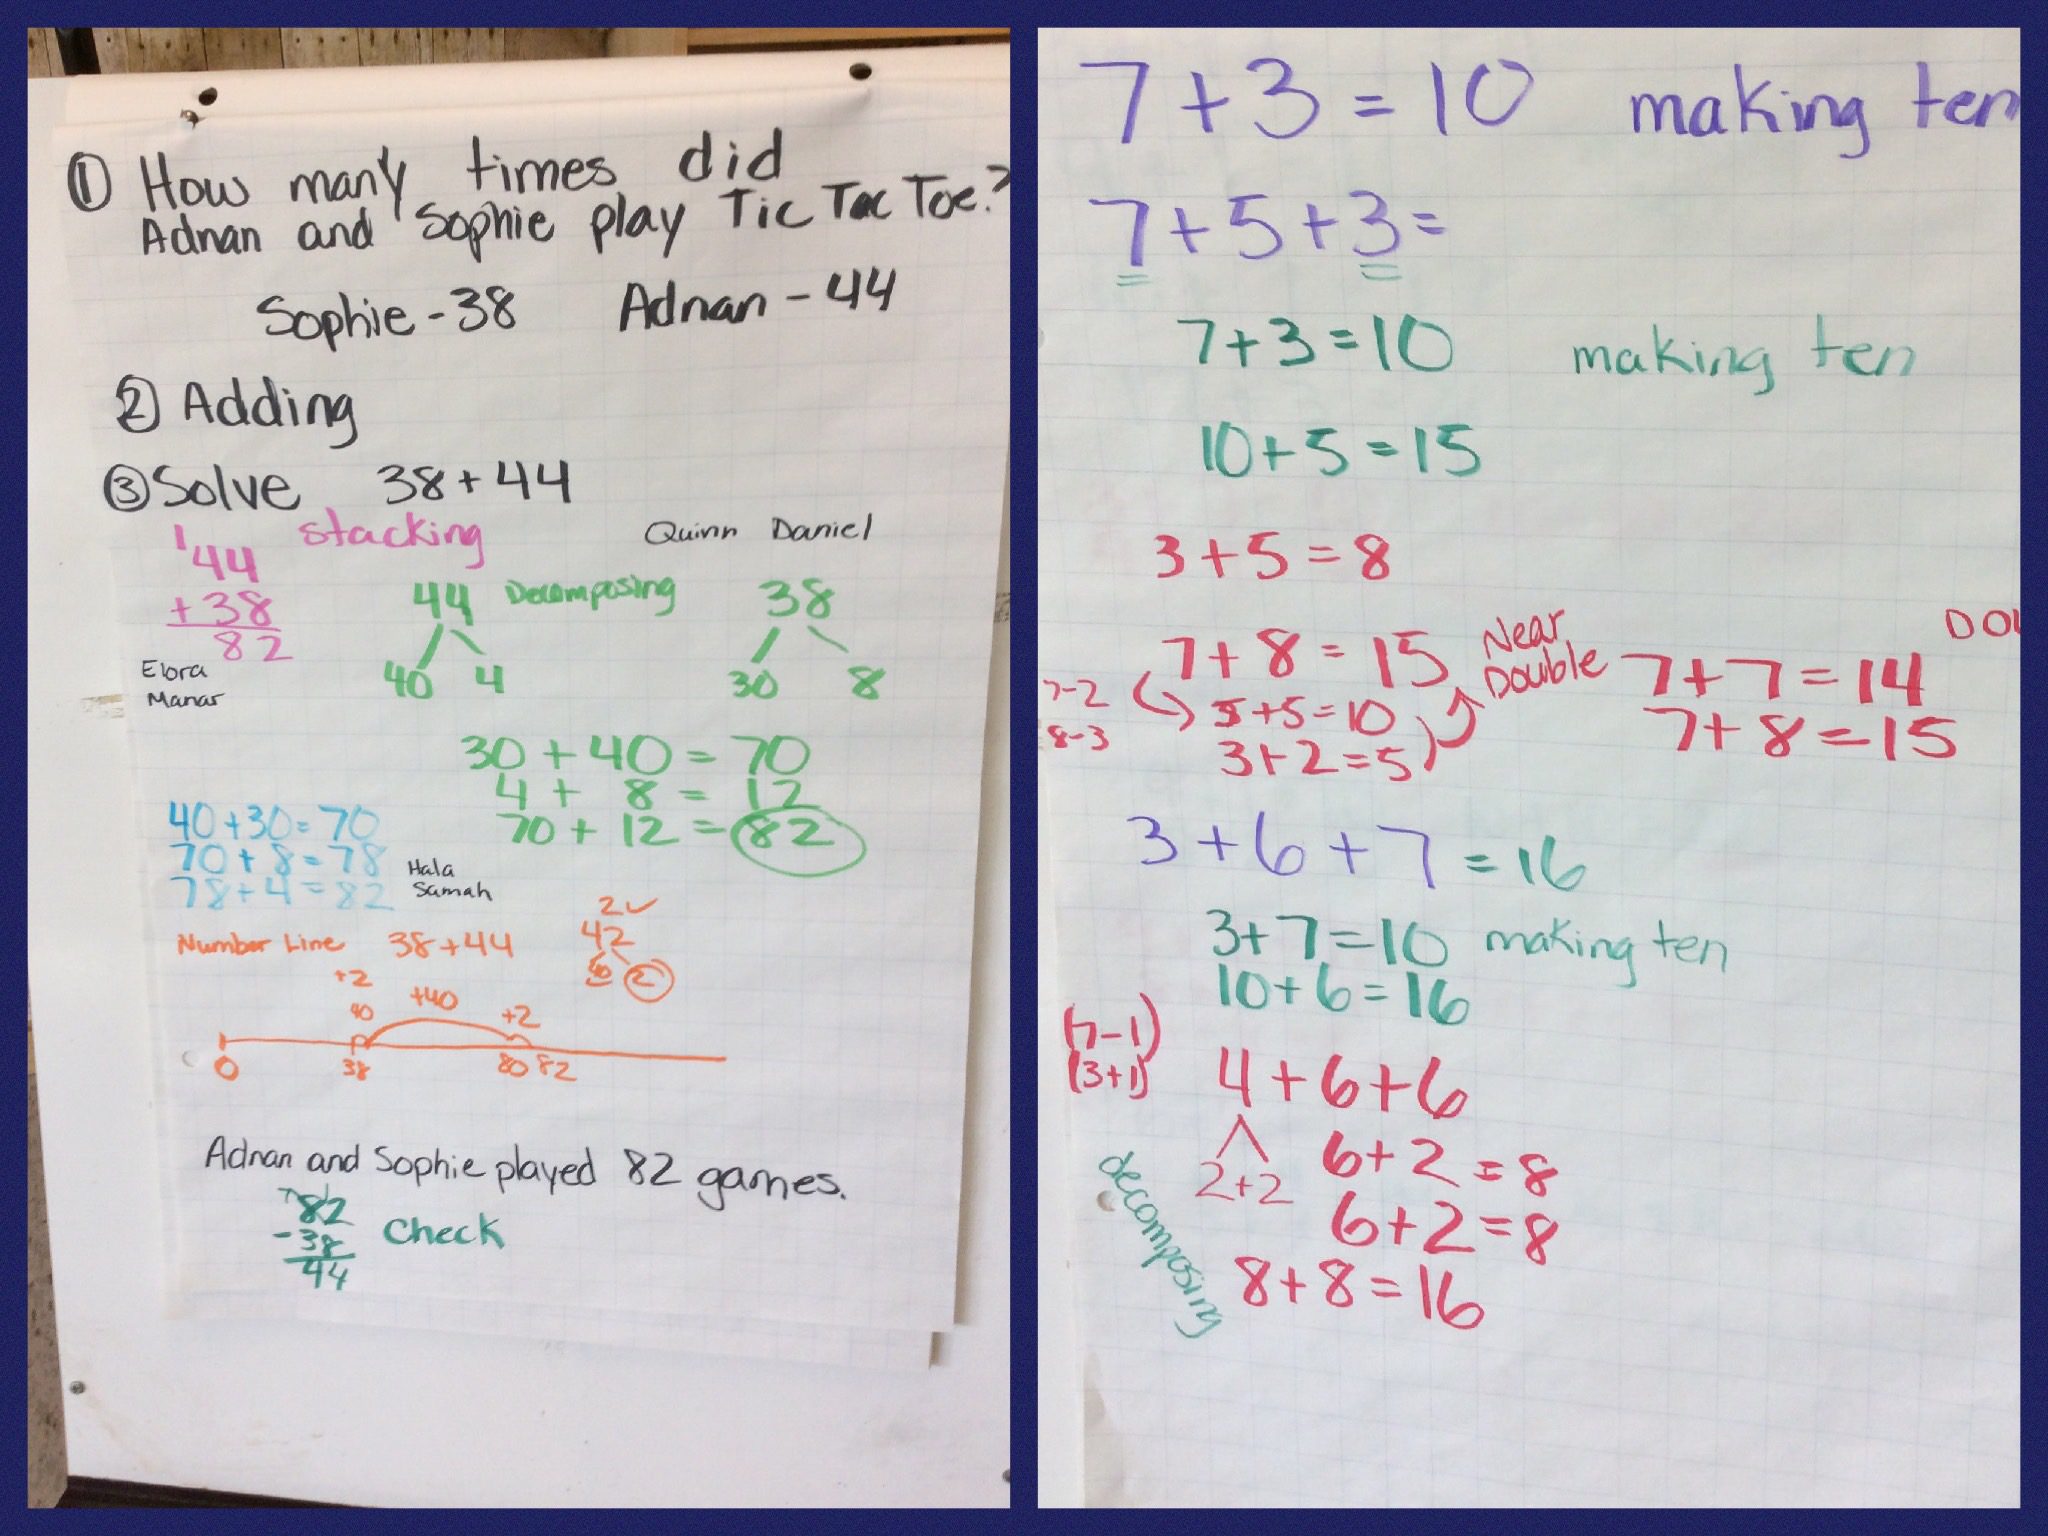 ① How many times did
Adnan and Sophie play Tic Tac Toe?
Sophie - 38 Adnan - 44
② Adding
③ Solve 38 + 44
stacking
1
44
+ 38
82
Elora
Manar
Quinn Daniel
44 Decomposing 38
40 4 30 8
30 + 40 = 70
4 + 8 = 12
70 + 12 = 82
40 + 30 = 70
70 + 8 = 78
78 + 4 = 82
Hala
Samah
Number Line 38 + 44
2 ✓
42
40 2
+2
40
+40 +2
0 38 80 82
Adnan and Sophie played 82 games.
82
- 38
44
Check
7 + 3 = 10 making ten
7 + 5 + 3 =
7 + 3 = 10 making ten
10 + 5 = 15
3 + 5 = 8
7 + 8 = 15 Near
Double
7-2
8-3
5 + 5 = 10
3 + 2 = 5
7 + 7 = 14
7 + 8 = 15
3 + 6 + 7 = 16
3 + 7 = 10 making ten
10 + 6 = 16
(7-1)
(3+1)
4 + 6 + 6
2+2
6 + 2 = 8
6 + 2 = 8
8 + 8 = 16
decomposing